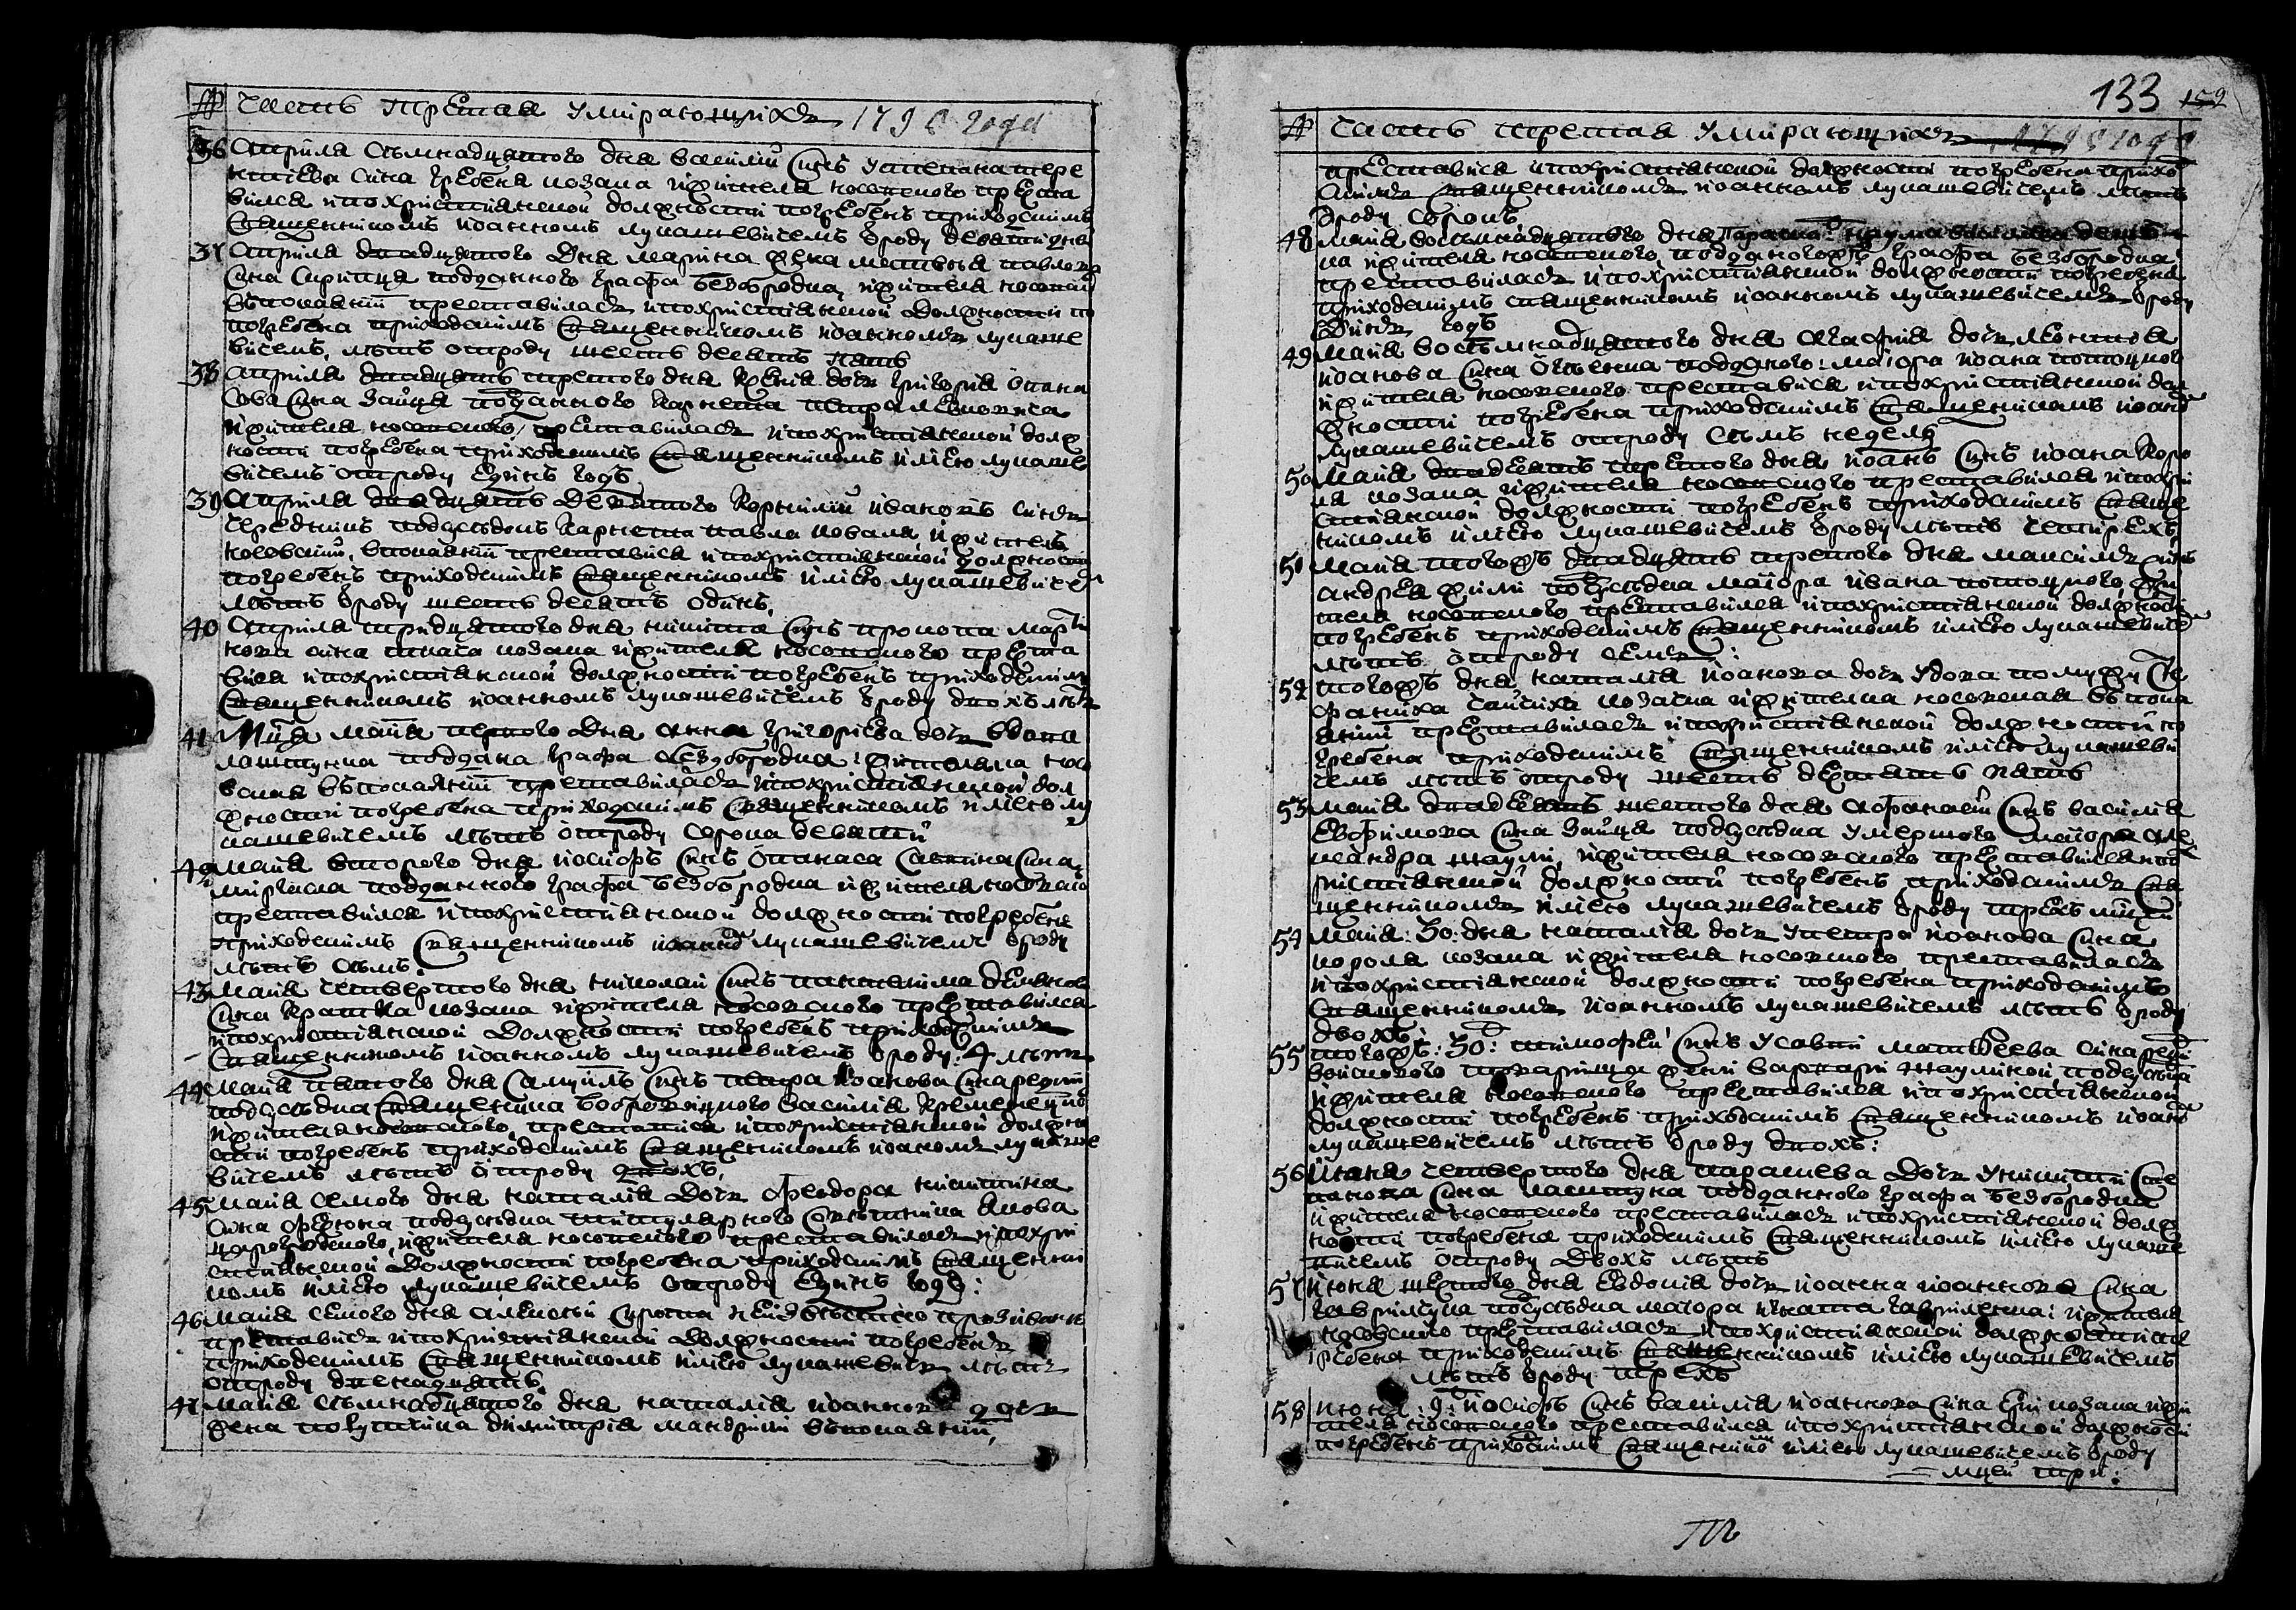 № Часть третая умирающихъ 1796 года
36 Априля семнадцатого дня василий синъ
сина гребеня козака жителя носовского преста
вился и похристиянской должности погребенъ приходскимъ
священникомъ иоанномъ лукашевичемъ ѿроду девяти дней
37 Априля двадцатого дня марина жена матвея павлова
сина скрипца подданного графа безбородка, жителя носовской
въпокаянии преставилась и похристиянской должности по
гребена приходскимъ священникомъ иоанномъ лукаше
вичемъ, лѣтъ отроду шесть десятъ пять
38 Априля двадцать третого дня ирина дочь григория опана
сова сина зайца подданного корнета петра левковича
жителя носовского, преставилась и похристиянской долж
ности погребена приходскимъ священникомъ илиею лукаше
вичемъ отроду единъ годъ
39 Априля двадцать девятого корнилий ивановъ синъ
середнякъ подсусѣдокъ корнета павла коваля, житель
носовский, впокаянии преставися и похристиянской должности
погребенъ приходскимъ священникомъ илиею лукашевичемъ
лѣтъ ѿроду шесть десять одинъ,
40 Априля тридцатого дня никита синъ прокопа марти
нова сина козака жителя носовского преста
вися и похристиянской должности погребенъ приходскимъ
священникомъ иоанномъ лукашевичемъ ѿроду двохъ лѣтъ
41 Мца маия первого дня анна григориева дочь вдова
лашчукова подданая графа безбородка жителька носо
вская въпокаянии преставилась и похристиянской дол
жности погребена приходскимъ священникомъ илиею лу
кашевичемъ лѣтъ отроду сорока девяти
42 Маия второго дня иосифъ синъ опанаса савина сина
миргаса подданного графа безбородка жителя носовского
преставился и похристиянской должности погребенъ
приходскимъ священникомъ иоанномъ лукашевичемъ ѿроду
лѣтъ семъ
43 Маия четвертого дня николай синъ пантелима
сина кратка козака жителя носовского преставился
и похристиянской должности погребенъ приходскимъ
священникомъ иоанномъ лукашевичемъ ѿроду: 4 лѣтъ
44 Маия пятого дня самуилъ синъ петра иоанова сина
подсусѣдка священика василия
жителя носовского, преставися и похристиянской должно
сти погребенъ приходскимъ священикомъ иоаномъ лукаше
вичемъ лѣтъ отроду двохъ,
45 Маия семого дня наталия дочь феодора никитина
сина подсусѣдка титулярного совѣтника якова
жителя носовского преставилась и похри
стиянской должности погребена приходскимъ священни
комъ илиею лукашевичемъ отроду единъ годъ:
46 Маия семого дня алексѣй сирота неизвѣстного прозвания
преставись и похристиянской должности погребенъ
приходскимъ священникомъ илиею лукашевичъ лѣтъ
отроду двенадцать
47 Маия семнадцатого дня наталия иоаннова дочь
жена димитрия въпокаянии,
133 152
№ Часть третая умирающихъ 1796 года
преставися и похристиянской должности погребена прихо
дскимъ священникомъ иоанномъ лукашевичемъ лѣтъ
ѿроду сорокъ
48 Маия восемнадцатого дня параска
на жителя носовского подданногожъ графа безбородка
преставилась и похристиянской должности погребена
приходскимъ священникомъ иоанномъ лукашевичемъ ѿроду
динъ годъ
49 Маия восемнадцатого дня агафия дочь леонтия
иоанова сина подданого: маиора иоана потоцкого
жителя носовского преставися и похристиянской дол
жности погребена приходскимъ священикомъ иоаномъ
лукашевичемъ отроду семъ недель
50 Маия двадесять третого дня иоанъ синъ иоана коро
ля козака жителя носовского преставился и похри
стиянской должности погребенъ приходскимъ свяще
никомъ илиею лукашевичемъ ѿроду лѣтъ четирехъ,
51 Маия тогожъ двадцать третого дня максимъ синъ
андрея подсусѣдка маиора ивана потоцкого, жи
теля носовского преставился и похристиянской должности
погребенъ приходскимъ священникомъ илиею лукашевичемъ
лѣтъ отроду семъ:
52 Тогожъ дня наталия иоанова дочь удова по мужу сте
фаниха козачка жителка носовская въпока
янии преставилась и похристиянской должности по
гребена приходскимъ священникомъ илиею лукашеви
чемъ лѣтъ отроду шесть десять пять
53 Маия двадесять шестого дня афанасий синъ василия
евфимова сина зайца подсусѣдка умершого маиора але
ксандра жителя носовского преставися и похри
стиянской должности погребенъ приходскимъ свя
щенникомъ илиею лукашевичемъ ѿроду трехъ мцей
54 Маия: 30: дня наталия дочь у петра иоанова сина
короля козака жителя носовского преставилась
и похристиянской должности погребена приходскимъ
священникомъ иоанномъ лукашевичемъ лѣтъ ѿроду
двохъ:
55 Тогожъ: 30: тимофей синъ у савии матвеева сина
войскового товарища жени варвари подсусѣдка
жителя носовского преставился и похристиянской
должности погребенъ приходскимъ священникомъ иоанномъ
лукашевичемъ лѣтъ ѿроду двохъ:
56 Июня четвертого дня параскева дочь у никити сте
панова сина пастука подданного графа безбородка
жителя носовского преставилась и похристиянской долж
ности погребена приходскимъ священникомъ илиею лукаше
вичемъ отроду двохъ лѣтъ
57 Июня шестого дня евдокия дочь иоанна иоаннова сина
гаврилчука подсусѣдка маиора игната гавриленка: жителя
носовского преставилась и похристиянской должности пог
ребена приходскимъ священникомъ илиею лукашевичемъ
лѣтъ ѿроду трехъ
58 Июня: 9: иосифъ синъ василия иоанова сина козака жи
теля носовского преставися и похристиянской должности
погребенъ приходскимъ священникомъ илиею лукашевичемъ ѿроду
мцей три: